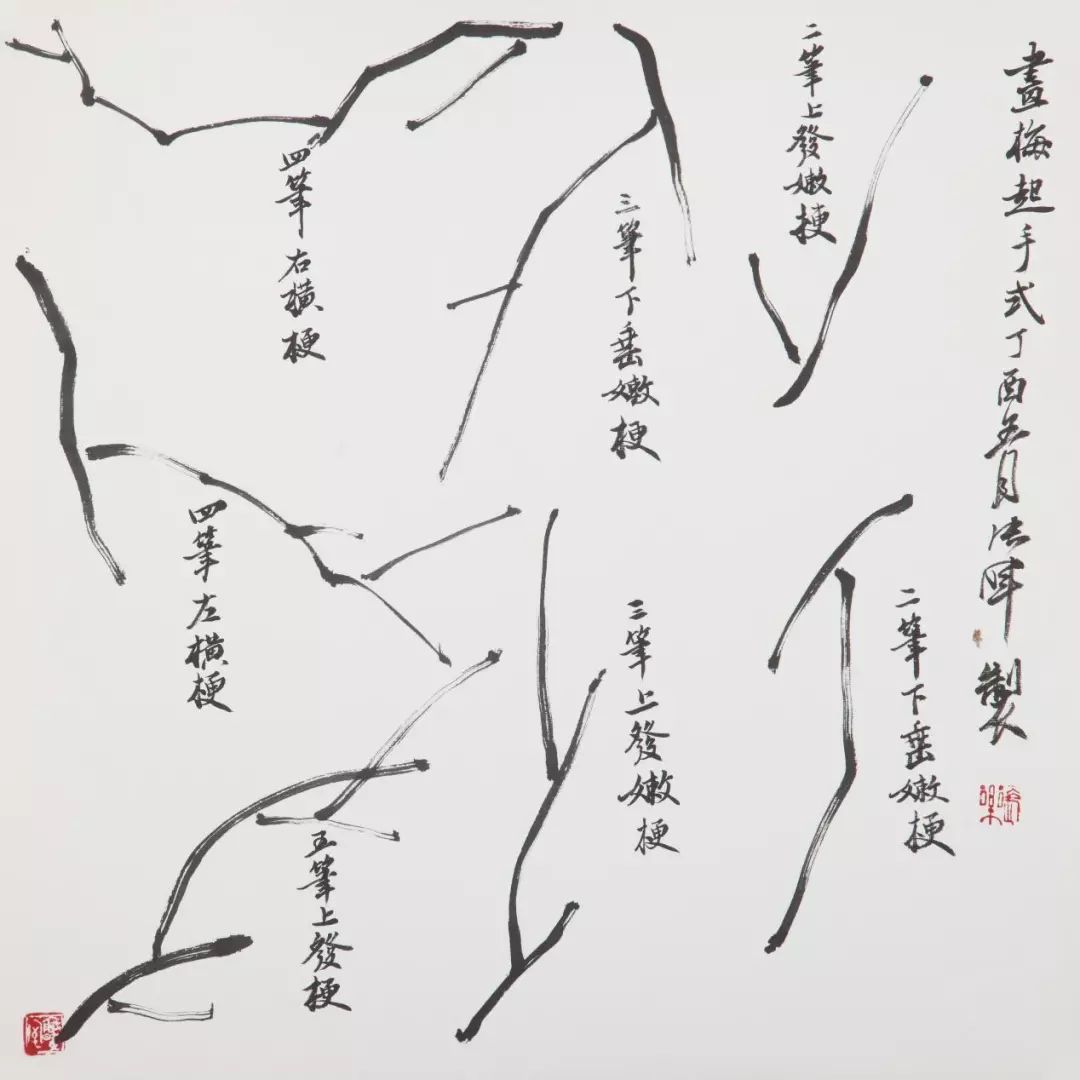 畫梅起手式丁酉五月法暉製
二筆上發嫩梗
二筆下垂嫩梗
三筆下垂嫩梗
三筆上發嫩梗
四筆右橫梗
四筆左橫梗
五筆上發梗